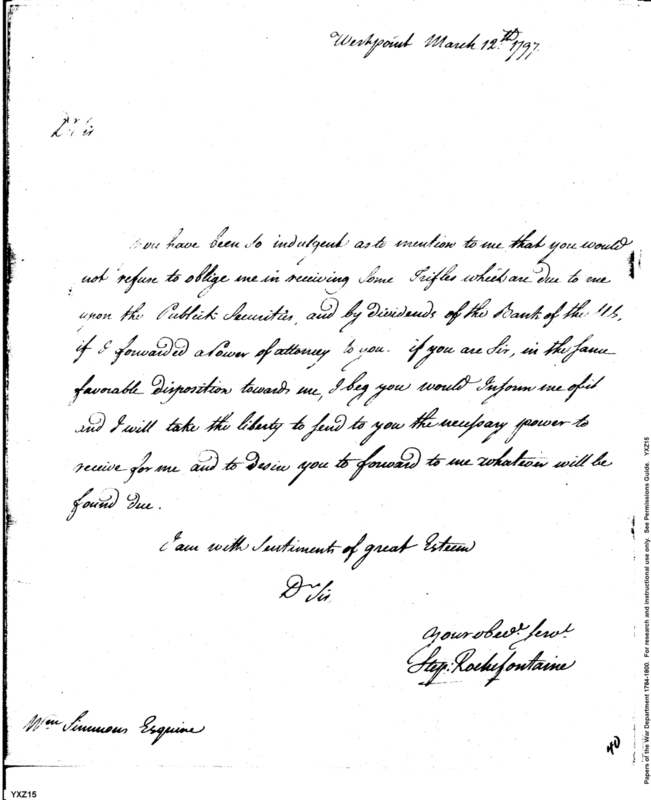 Westpoint March 12.th 1797.
Dr. Sir
You have been so indulgent as to mention to me that you would
not refuse to oblige me in receiving Some Trifles which are due to me
upon the Publick Securities, and by dividends of the Bank of the US,
if I forwarded a Power of attorney to you. if you are Sir, in the same
favorable disposition towards me, I beg you would Inform me of it
and I will take the liberty to send to you the necessary power to
receive for me and to desire you to forward to me whatever will be
found due.
I am with Sentiments of great Esteem
Dr Sir
Your obedt. Servt.
Step. Rochefontaine
Wm Simmons Esquire
40
YXZ15
Papers of the War Department 1784-1800. For research and instructional use only. See Permissions Guide. YXZ15